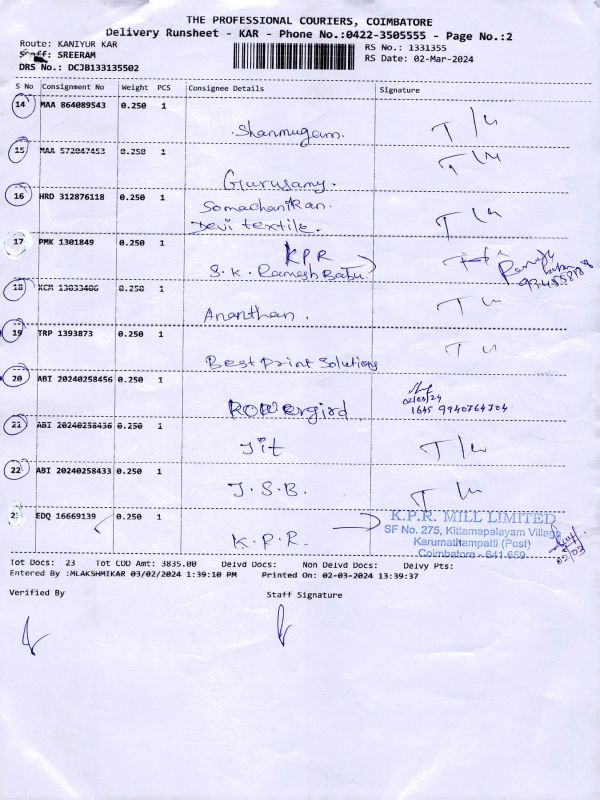 THE PROFESSIONAL COURIERS, COIMBATORE
Delivery Runsheet - KAR - Phone No.:0422-3505555 - Page No.:2
Route: KANIYUR KAR
RS No.: 1331355
Staff: SREERAM
RS Date: 02-Mar-2024
DRS No.: DCJB133135502
S No Consignment No Weight PCS Consignee Details Signature
14 MAA 864089543 0.250 1
Shanmugam.
15 MAA 572047453 0.250 1
Gurusamy.
16 HRD 312876118 0.250 1
Somachanikan.
Devi textile.
17 PMK 1301849 0.250 1
KPR
S.K. Ramesh Babu
18 KCM 13033486 0.250 1
Ananthan.
19 TRP 1393873 0.250 1
Best Print Solutions
20 ABI 20240258456 0.250 1
Powergird
02/03/24
1645 9940764704
21 ABI 20240258436 0.250 1
Jit
22 ABI 20240258433 0.250 1
J.S.B.
23 EDQ 16669139 0.250 1
K.P.R.
K.P.R. MILL LIMITED
SF No. 275, Kittampalayam Village
Karumathampatti (Post)
Coimbatore - 641 659
Tot Docs: 23 Tot COD Amt: 3835.00 Delvd Docs: Non Delvd Docs: Delvy Pts:
Entered By :MLAKSHMIKAR 03/02/2024 1:39:10 PM Printed On: 02-03-2024 13:39:37
Verified By Staff Signature